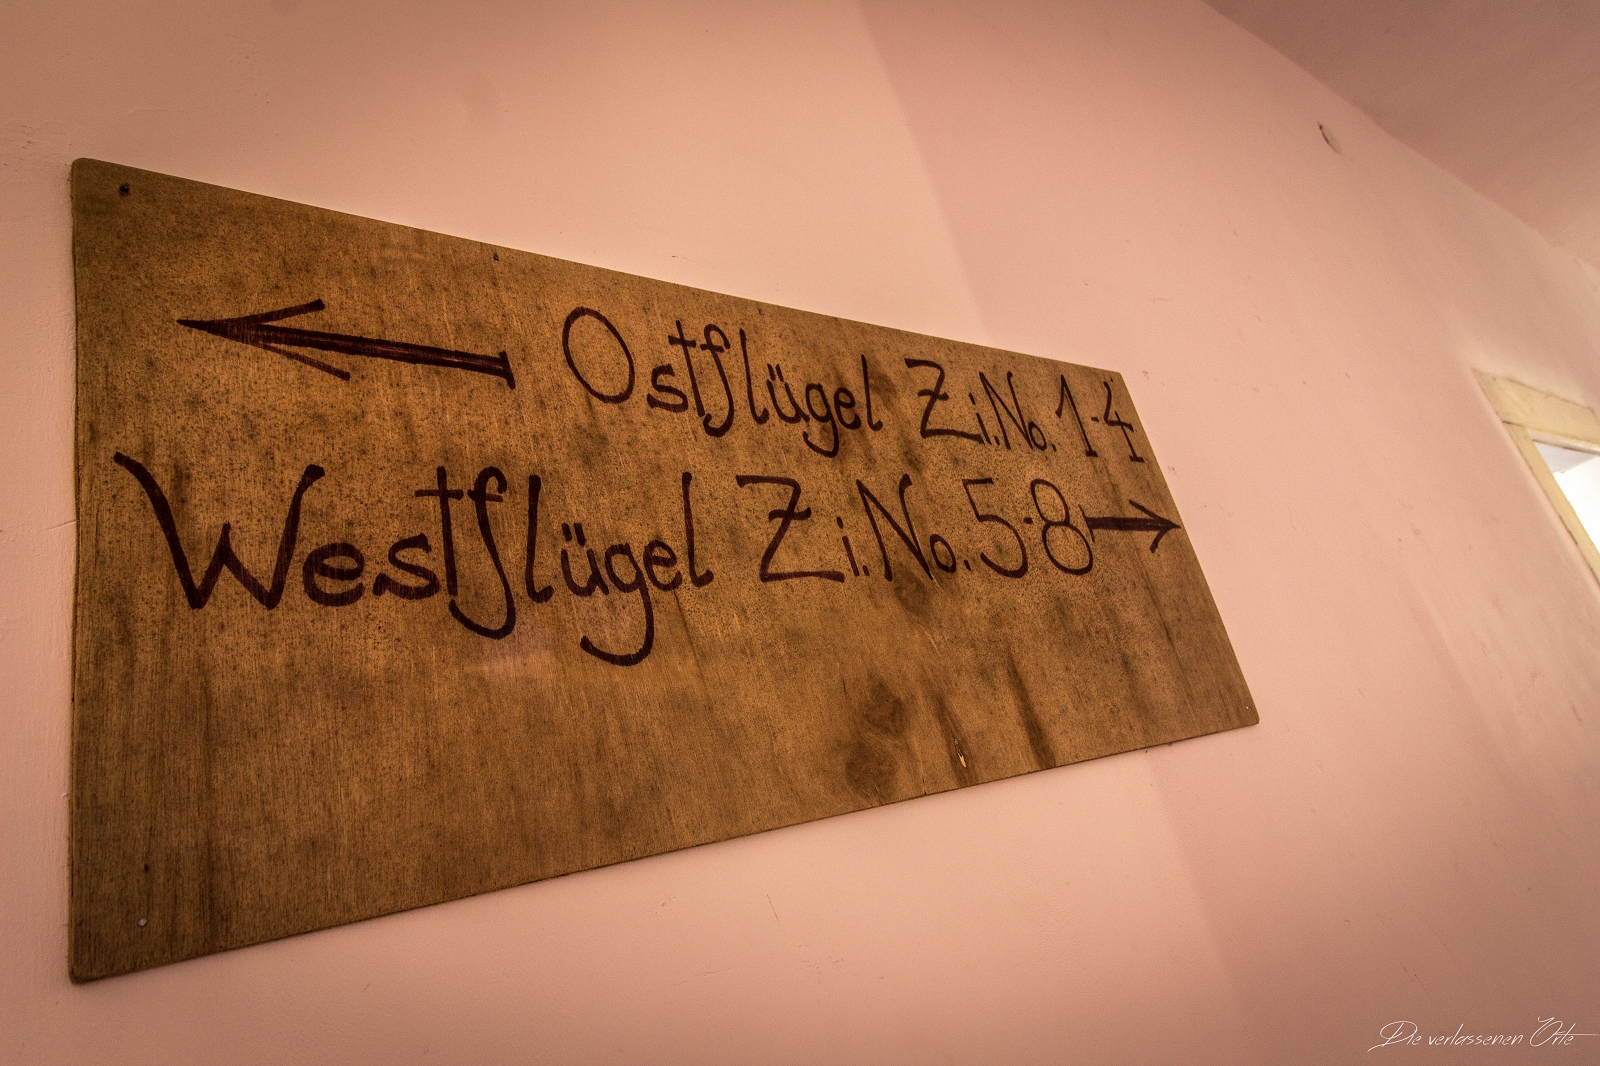 Ostflügel Zi.No. 1-4
Westflügel Zi.No. 5-8
Die verlassenen Orte